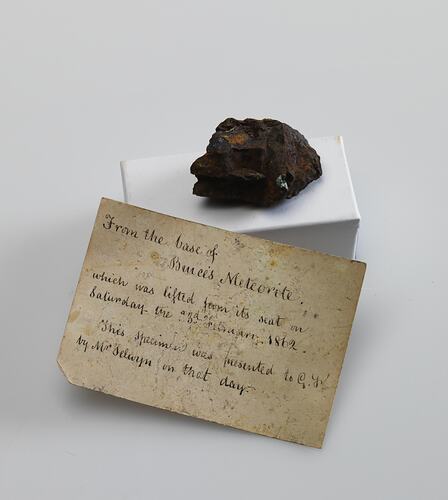 From the base of
Bruce's Meteorite.
which was lifted from its seat on
Saturday the 22nd February, 1862.
This specimen was presented to G.
by Mr Selwyn on that day.